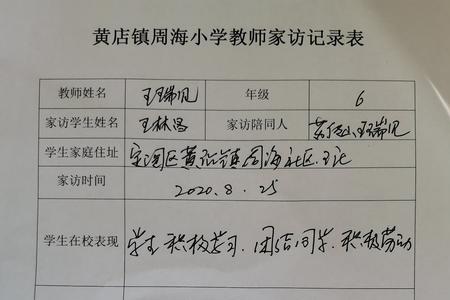 黄店镇周海小学教师家访记录表
教师姓名 王瑞凡 年级 6
家访学生姓名 王林昌 家访陪同人 王瑞凡
学生家庭住址 定陶区黄店镇周海社区王庄
家访时间 2020.8.25
学生在校表现 学生积极学习.团结同学.积极劳动